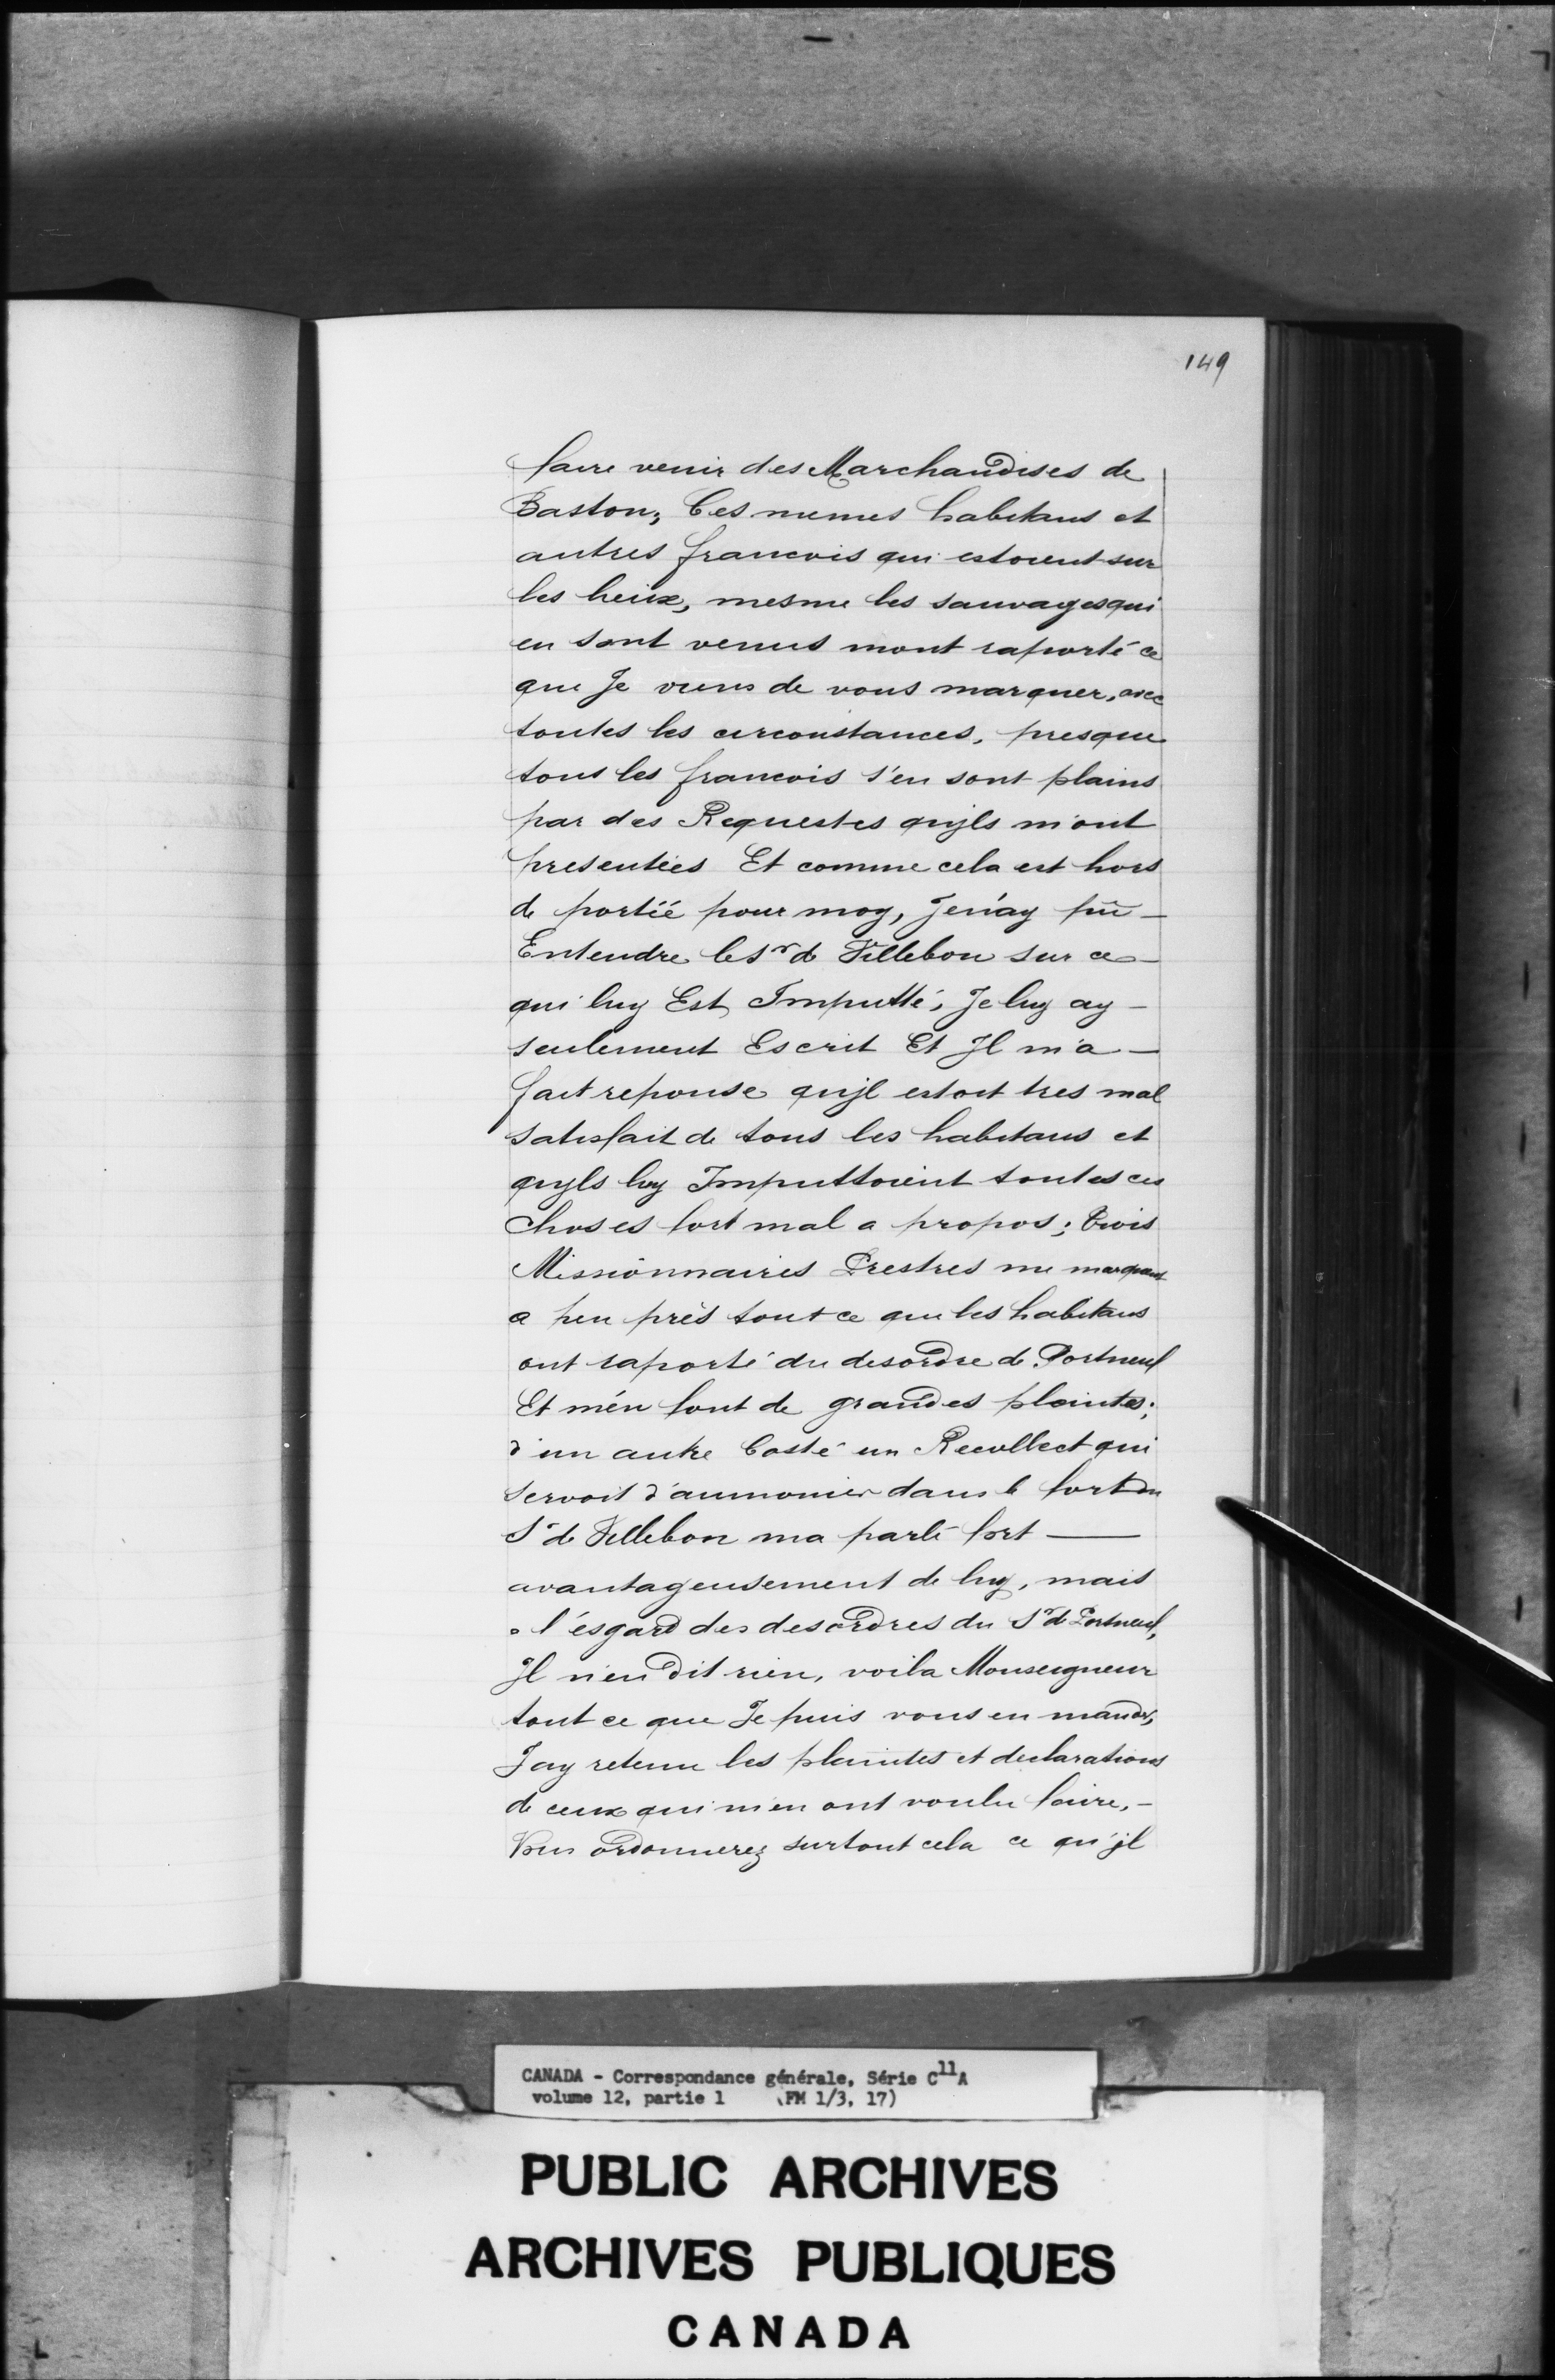 149
faire venir des Marchandises de
Baston; Ces mesmes habitans et
autres francois qui estoient sur
les lieux, mesme les sauvages qui
en sont venus mont raporté ce
que Je viens de vous marquer, avec
toutes les circonstances, presque
tous les francois s'en sont plains
par des Requestes qujls m'ont
presentées Et comme cela est hors
de portée pour moy, Je n'ay pû -
Entendre le Sr de Villebon sur ce -
qui luy Est Imputté, Je luy ay -
seulement Escrit Et Jl m'a -
fait reponse qujl estoit tres mal
satisfait de tous les habitans et
quyls luy Imputtoient toutes ces
choses fort mal a propos; trois
Missionnaires Prestres me marquent
a peu près tout ce que les habitans
ont raporté du desordre de Portneuf
Et m'én font de grandes plaintes;
d'un autre Costé un Recollect qui
servoit d'aumonier dans le fort du
Sr de Villebon ma parlé fort —
avantageusement de luy, mais
a l'ésgard des desordres du Sr de Portneuf,
Jl n'en dit rien, voila Monseigneur
tout ce que Je puis vous en mander,
J'ay retenu les plaintes et declarations
de ceux qui m'en ont voulu faire, -
Vous ordonnerez surtout cela ce qu'jl
CANADA - Correspondance générale, Série C11A
volume 12, partie 1 (FM 1/3, 17)
PUBLIC ARCHIVES
ARCHIVES PUBLIQUES
CANADA